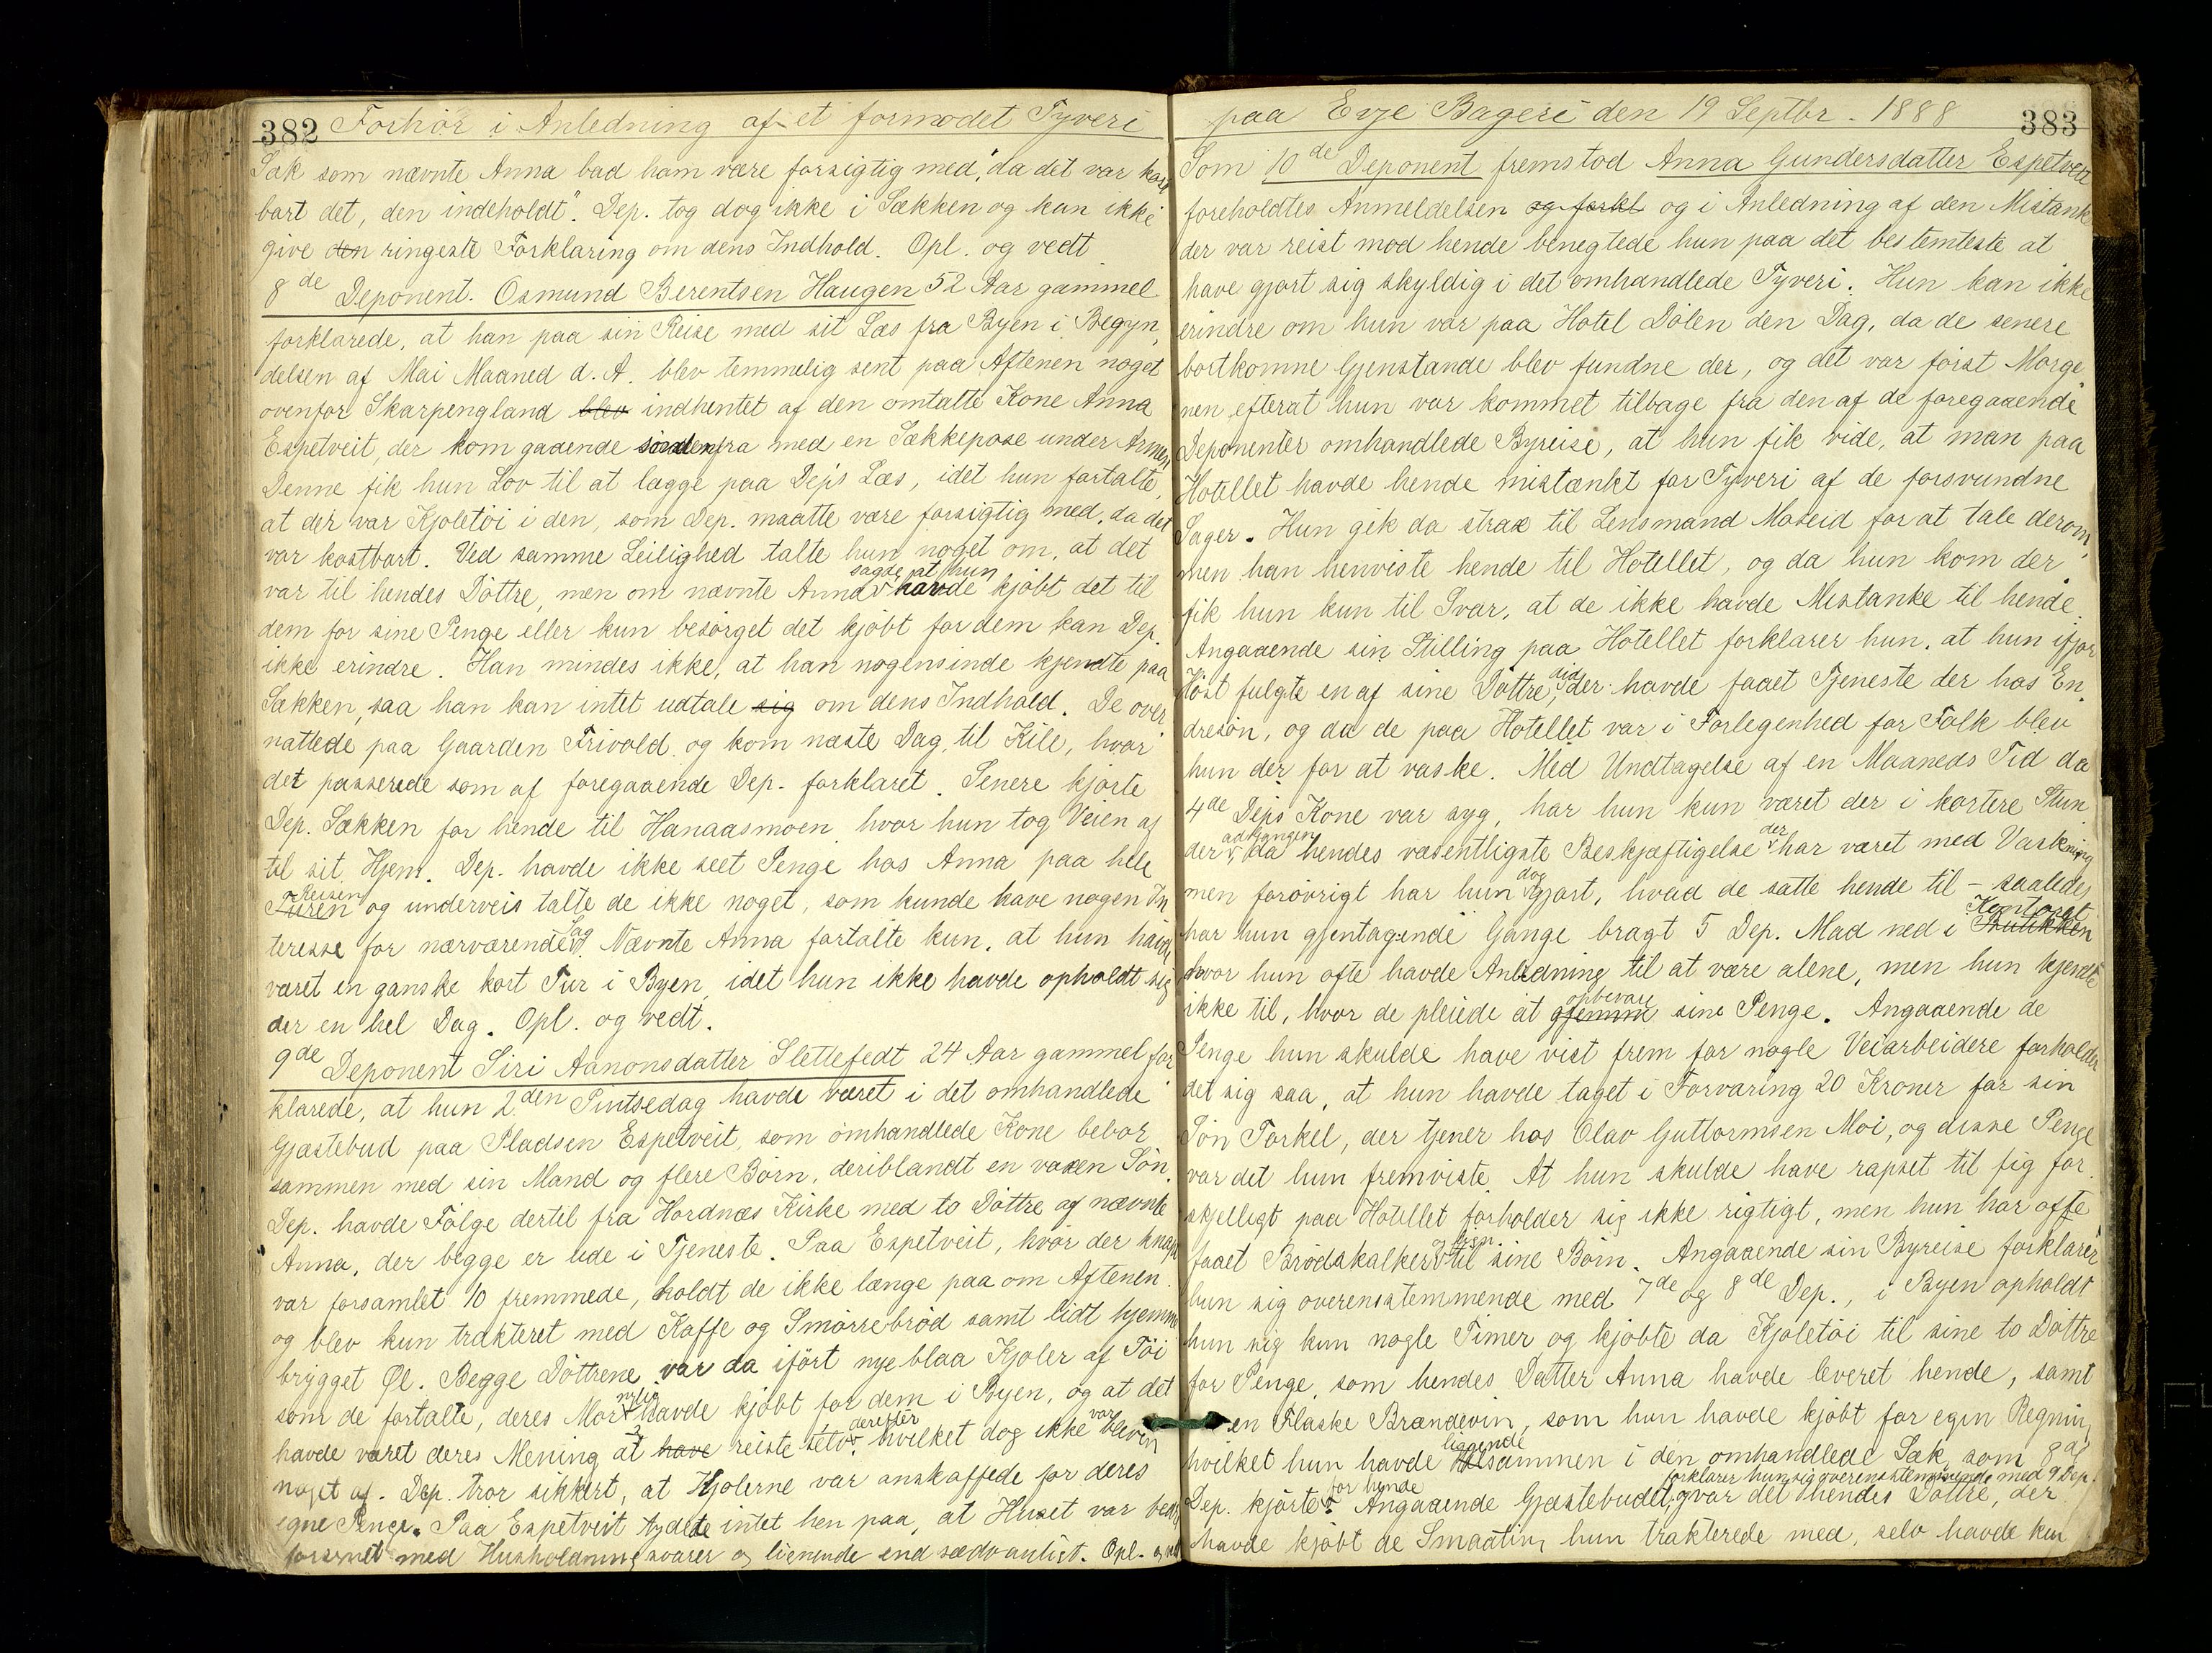 382 Forhör i Anledning af et formodet Tyveri
Sæk som nævnte Anna bad ham være forsigtig med, "da det var kost
bart det, den indeholdt". Dep. tog dog ikke i Sækken og kan ikke
give den ringeste Forklaring om dens Indhold. Opl. og vedt.
8de Deponent. Osmund Berentsen Haugen 52 Aar gammel
forklarede, at han paa sin Reise med sit Læs fra Byen i Begyn
delsen af Mai Maaned d. A. blev temmelig sent paa Aftenen noget
ovenfor Skarpengland blev indhentet af den omtalte Kone Anna
Espetveit, der kom gaaende søndenfra med en Sækkepose under Armen
Denne fik hun Lov til at lægge paa Dep's Læs, idet hun fortalte,
at der var Kjoletöi i den, som Dep. maatte være forsigtig med, da det
var kostbart. Ved samme Leilighed talte hun noget om, at det
sagde at hun
var til hendes Döttre, men om nævnte Anna havde kjöbt det til
dem for sine Penge eller kun besörget det kjöbt for dem kan Dep.
ikke erindre. Han mindes ikke, at han nogensinde kjendte paa
Sækken, saa han kan intet udtale sig om dens Indhold. De over
nattede paa Gaarden Frivold og kom næste Dag til Kile, hvor
det passerede som af foregaaende Dep. forklaret. Senere kjörte
Dep. Sækken for hende til Hanaasmoen hvor hun tog Veien af
til sit Hjem. Dep. havde ikke seet Penge hos Anna paa hele
Reisen
Turen og underveis talte de ikke noget, som kunde have nogen In
Sag
teresse for nærværende. Nævnte Anna fortalte kun, at hun havde
været en ganske kort Tur i Byen, idet hun ikke havde opholdt sig
der en hel Dag. Opl. og vedt.
9de Deponent Siri Aanonsdatter Slettefedt 24 Aar gammel for
klarede, at hun 2den Pintsedag havde været i det omhandlede
Gjæstebud paa Pladsen Espetveit, som omhandlede Kone bebor
sammen med sin Mand og flere Börn, deriblandt en voxen Sön.
Dep. havde Fölge dertil fra Hordnæs Kirke med to Döttre af nævnte
Anna, der begge er ude i Tjeneste. Paa Espetveit, hvor der knapt
var forsamlet 10 fremmede, holdt de ikke længe paa om Aftenen
og blev kun trakteret med Kaffe og Smörrebröd samt lidt hjemme
brygget Øl. Begge Döttrene var da ifört nye blaa Kjoler af Töi
nylig
som de fortalte, deres Mor havde kjöbt for dem i Byen, og at det
derefter var
havde været deres Mening at have reiste selv hvilket dog ikke bleven
noget af. Dep. tror sikkert, at Kjolerne var anskaffede for deres
egne Penge. Paa Espetveit tydede intet hen paa, at Huset var bedre
forsynet med Husholdningsvarer og lignende end sædvanligt. Opl. og vedt
paa Evje Bageri den 19 Septbr. 1888 383
Som 10de Deponent fremstod Anna Gundersdatter Espetveit
foreholdtes Anmeldelsen og forkl og i Anledning af den Mistanke
der var reist mod hende benegtede hun paa det bestemteste at
have gjort sig skyldig i det omhandlede Tyveri. Hun kan ikke
erindre om hun var paa Hotel Dölen den Dag, da de senere
bortkomne Gjenstande blev fundne der, og det var förist Morge
nen efterat hun var kommet tilbage fra den af de foregaaende
Deponenter omhandlede Byreise, at hun fik vide, at man paa
Hotellet havde hende mistænkt for Tyveri af de forsvundne
Sager. Hun gik da strax til Lensmand Moseid for at tale derom,
men han henviste hende til Hotellet, og da hun kom der
fik hun kun til Svar, at de ikke havde Mistanke til hende.
Angaaende sin Stilling paa Hotellet forklarer hun, at hun ifjor
did
Höst fulgte en af sine Döttre, der havde faaet Tjeneste der hos En
dresön, og da de paa Hotellet var i Forlegenhed for Folk blev
hun der for at vaske. Med Undtagelse af en Maaneds Tid da
4de Dep's Kone var syg, har hun kun været der i kortere Stun
ad Gangen der
der, da hendes væsentligste Beskjæftigelse har været med Vaskning
dog
men forövrigt har hun gjort, hvad de satte hende til - saaledes
Kontoret
har hun gjentagende Gange bragt 5 Dep. Mad ned i Butikken
hvor hun ofte havde Anledning til at være alene, men hun kjendte
opbevare
ikke til, hvor de pleiede at gjemme sine Penge. Angaaende de
Penge hun skulde have vist frem for nogle Veiarbeidere forholder
det sig saa, at hun havde taget i Forvaring 20 Kroner for sin
Sön Torkel, der tjener hos Olav Guttormsen Moi, og disse Penge
var det hun fremviste. At hun skulde have rapset til sig for
skjelligt paa Hotellet forholder sig ikke rigtigt, men hun har ofte
faaet Brödskalker til sine Börn. Angaaende sin Byreise forklarer
hun sig overensstemmende med 7de og 8de Dep., i Byen opholdt
hun sig kun nogle Timer og kjöbte da Kjoletöi til sine to Döttre
for Penge, som hendes Datter Anna havde leveret hende, samt
en Flaske Brændevin, som hun havde kjöbt for egen Regning
liggende
hvilket hun havde sammen i den omhandlede Sæk, som 8de
for hende forklarer hun sig overensstemmende med 9 Dep.
Dep. kjörte. Angaaende Gjæstebudet, var det hendes Döttre, der
havde kjöbt de Smaating hun trakterede med, selv havde kun